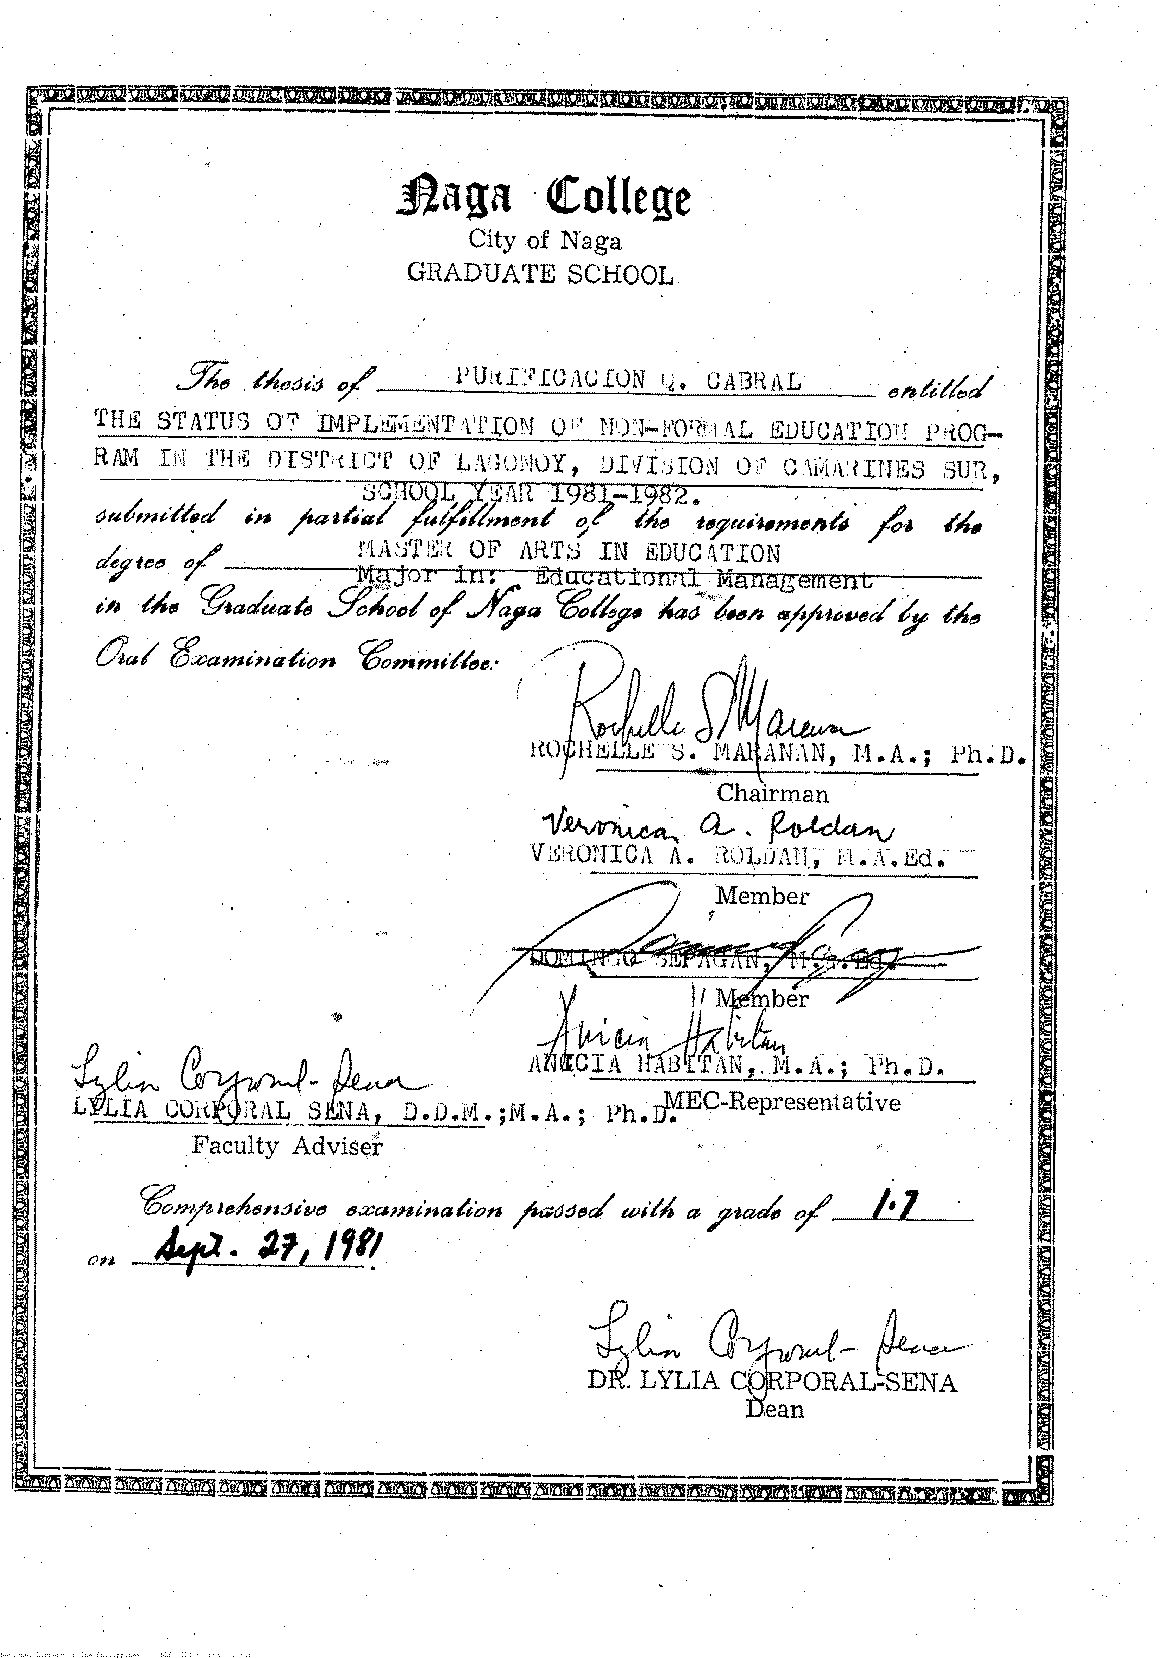 Naga College
City of Naga
GRADUATE SCHOOL
The thesis of PURIFICACION Q. CABRAL entitled
THE STATUS OF IMPLEMENTATION OF NON-FORMAL EDUCATION PROG-
RAM IN THE DISTRICT OF LAGONOY, DIVISION OF CAMARINES SUR,
SCHOOL YEAR 1981-1982.
submitted in partial fulfillment of the requirements for the
degree of MASTER OF ARTS IN EDUCATION
Major in: Educational Management
in the Graduate School of Naga College has been approved by the
Oral Examination Committee:
Rochelle S Maranan
ROCHELLE S. MARANAN, M.A.; Ph.D.
Chairman
Veronica A. Roldan
VERONICA A. ROLDAN, M.A.Ed.
Member
DOMINGO M.A.Ed.
Member
Anicia Habitan
ANICIA HABITAN, M.A.; Ph.D.
MEC-Representative
Lylia Corporal-Sena
LYLIA CORPORAL SENA, D.D.M.;M.A.; Ph.D.
Faculty Adviser
Comprehensive examination passed with a grade of 1.7
on Sept. 27, 1981.
Lylia Corporal-Sena
DR. LYLIA CORPORAL-SENA
Dean